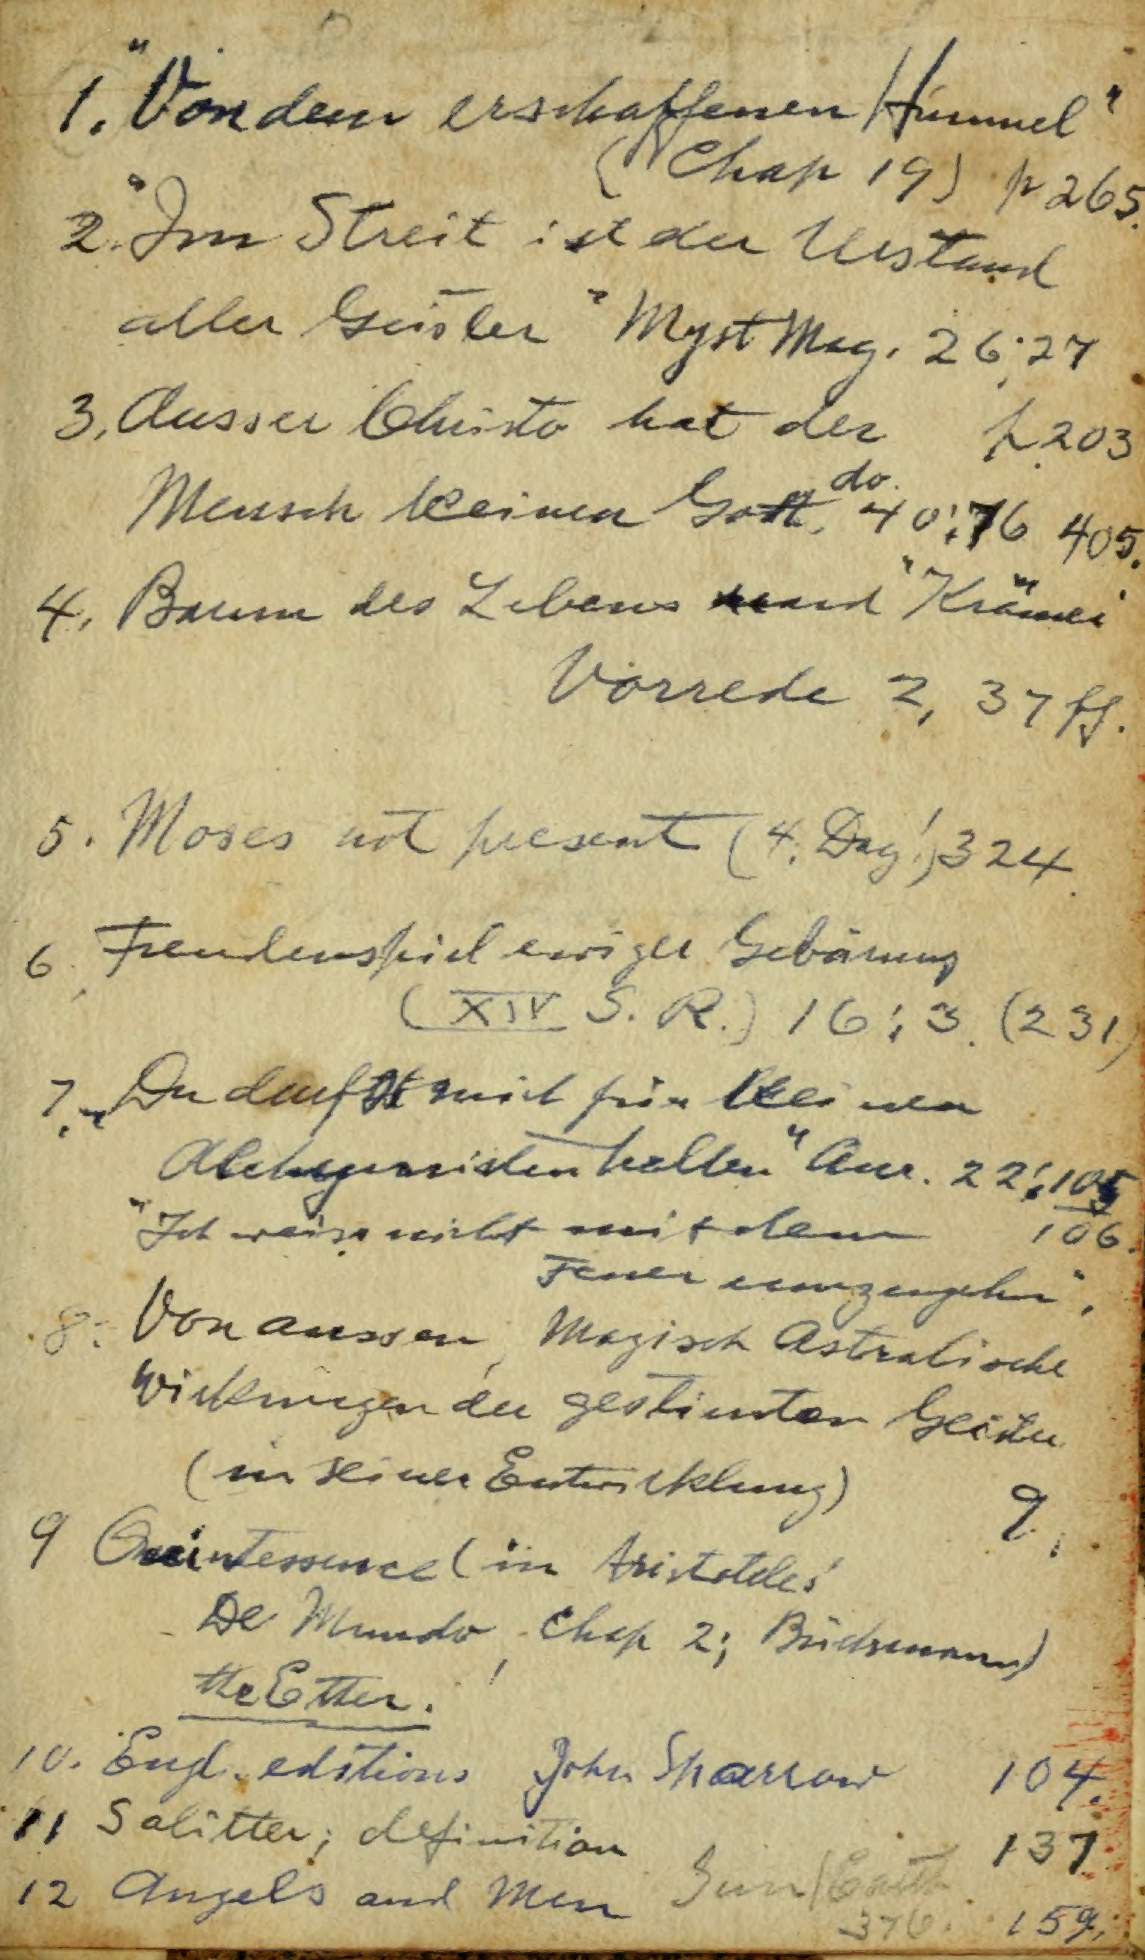 1. "Von dem erschaffenen Himmel"
(Chap 19) p 265.
2. "Im Streit ist der Urstand
aller Geister" Myst Mag. 26:27
3. Ausser Christo hat der p. 203
Mensch keinen Gott. do. 40:76 405.
4. Baum des Lebens und "Krämer"
Vorrede 2, 37 ff.
5. Moses not present (4. Day!) 324.
6. Freudenspiel ewiger Gebärung
(XIV S. R.) 16:3. (231)
7. "Du darfst mich für keinen
Alchymisten halten" Aur. 22:105
106.
"Ich weiss nicht mit dem
Feuer umzugehn".
8. Von aussen, Magisch Astralische
Wirkungen der gestirnten Geister
(in seiner Entwicklung) 9.
9 Quintessence (in Aristoteles'
De Mundo, Chap 2;
the Ether.
10. Engl. editions John Sparrow 104.
11 Salitter; definition 137
12 Angels and Men 159.
Sun/Earth
376.